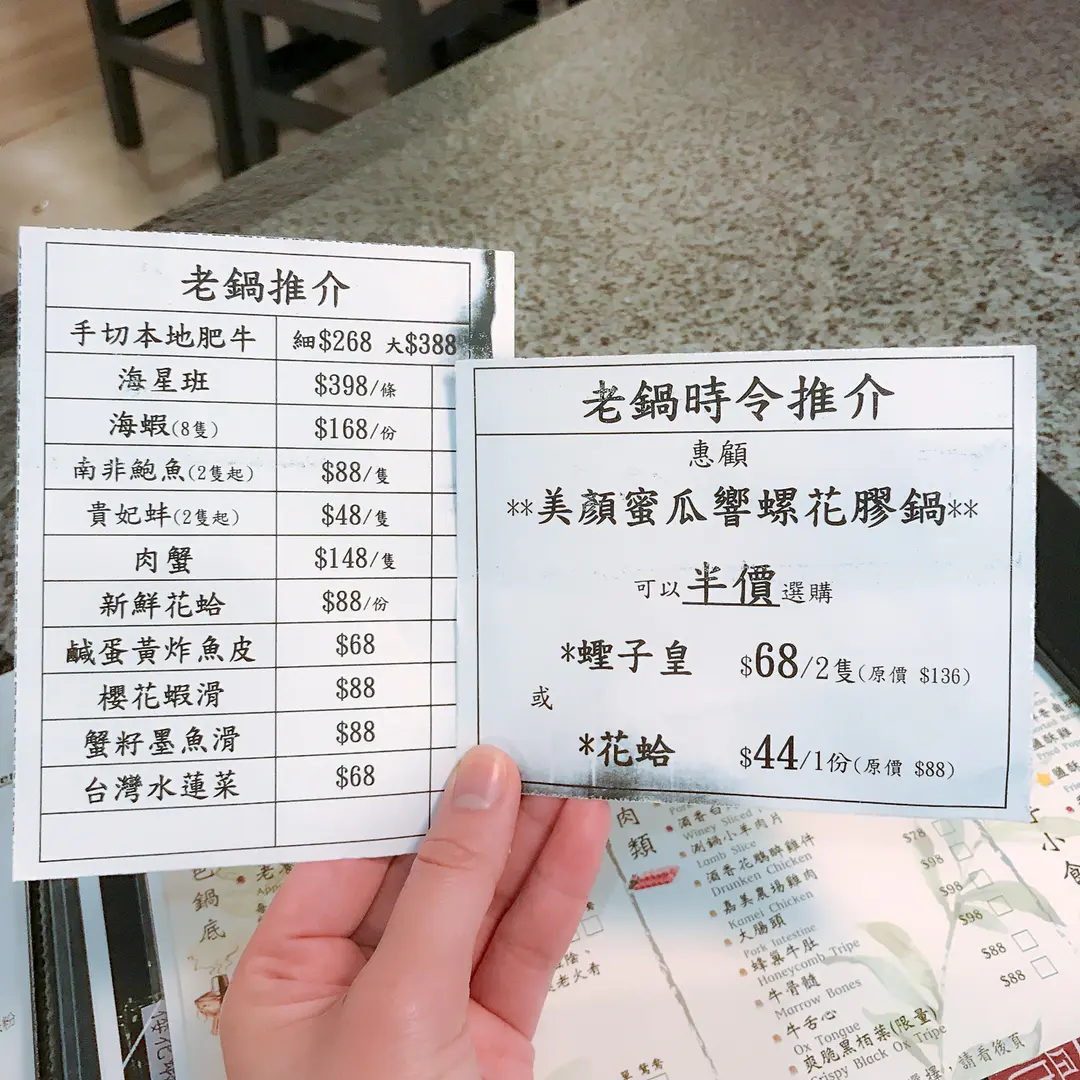 老鍋推介
手切本地肥牛 細$268 大$388
海星班 $398/條
海蝦(8隻) $168/份
南非鮑魚(2隻起) $88/隻
貴妃蚌(2隻起) $48/隻
肉蟹 $148/隻
新鮮花蛤 $88/份
鹹蛋黃炸魚皮 $68
櫻花蝦滑 $88
蟹籽墨魚滑 $88
台灣水蓮菜 $68
老鍋時令推介
惠顧
**美顏蜜瓜響螺花膠鍋**
可以半價選購
*蟶子皇 $68/2隻(原價 $136)
或
*花蛤 $44/1份(原價 $88)
鍋底
肉類
酒香
Winey Sliced
涮鍋小羊肉片
Lamb Slice
酒香花鵰醉雞件
Drunken Chicken
嘉美農場雞肉
Kamei Chicken
大腸頭
Pork Intestine
蜂巢牛肚
Honeycomb Tripe
牛骨髓
Marrow Bones
牛舌心
Ox Tongue
爽脆黑栢葉(限量)
Crispy Black Ox Tripe
$78
$98
$98
$98
$88
$88
小食
請看後頁